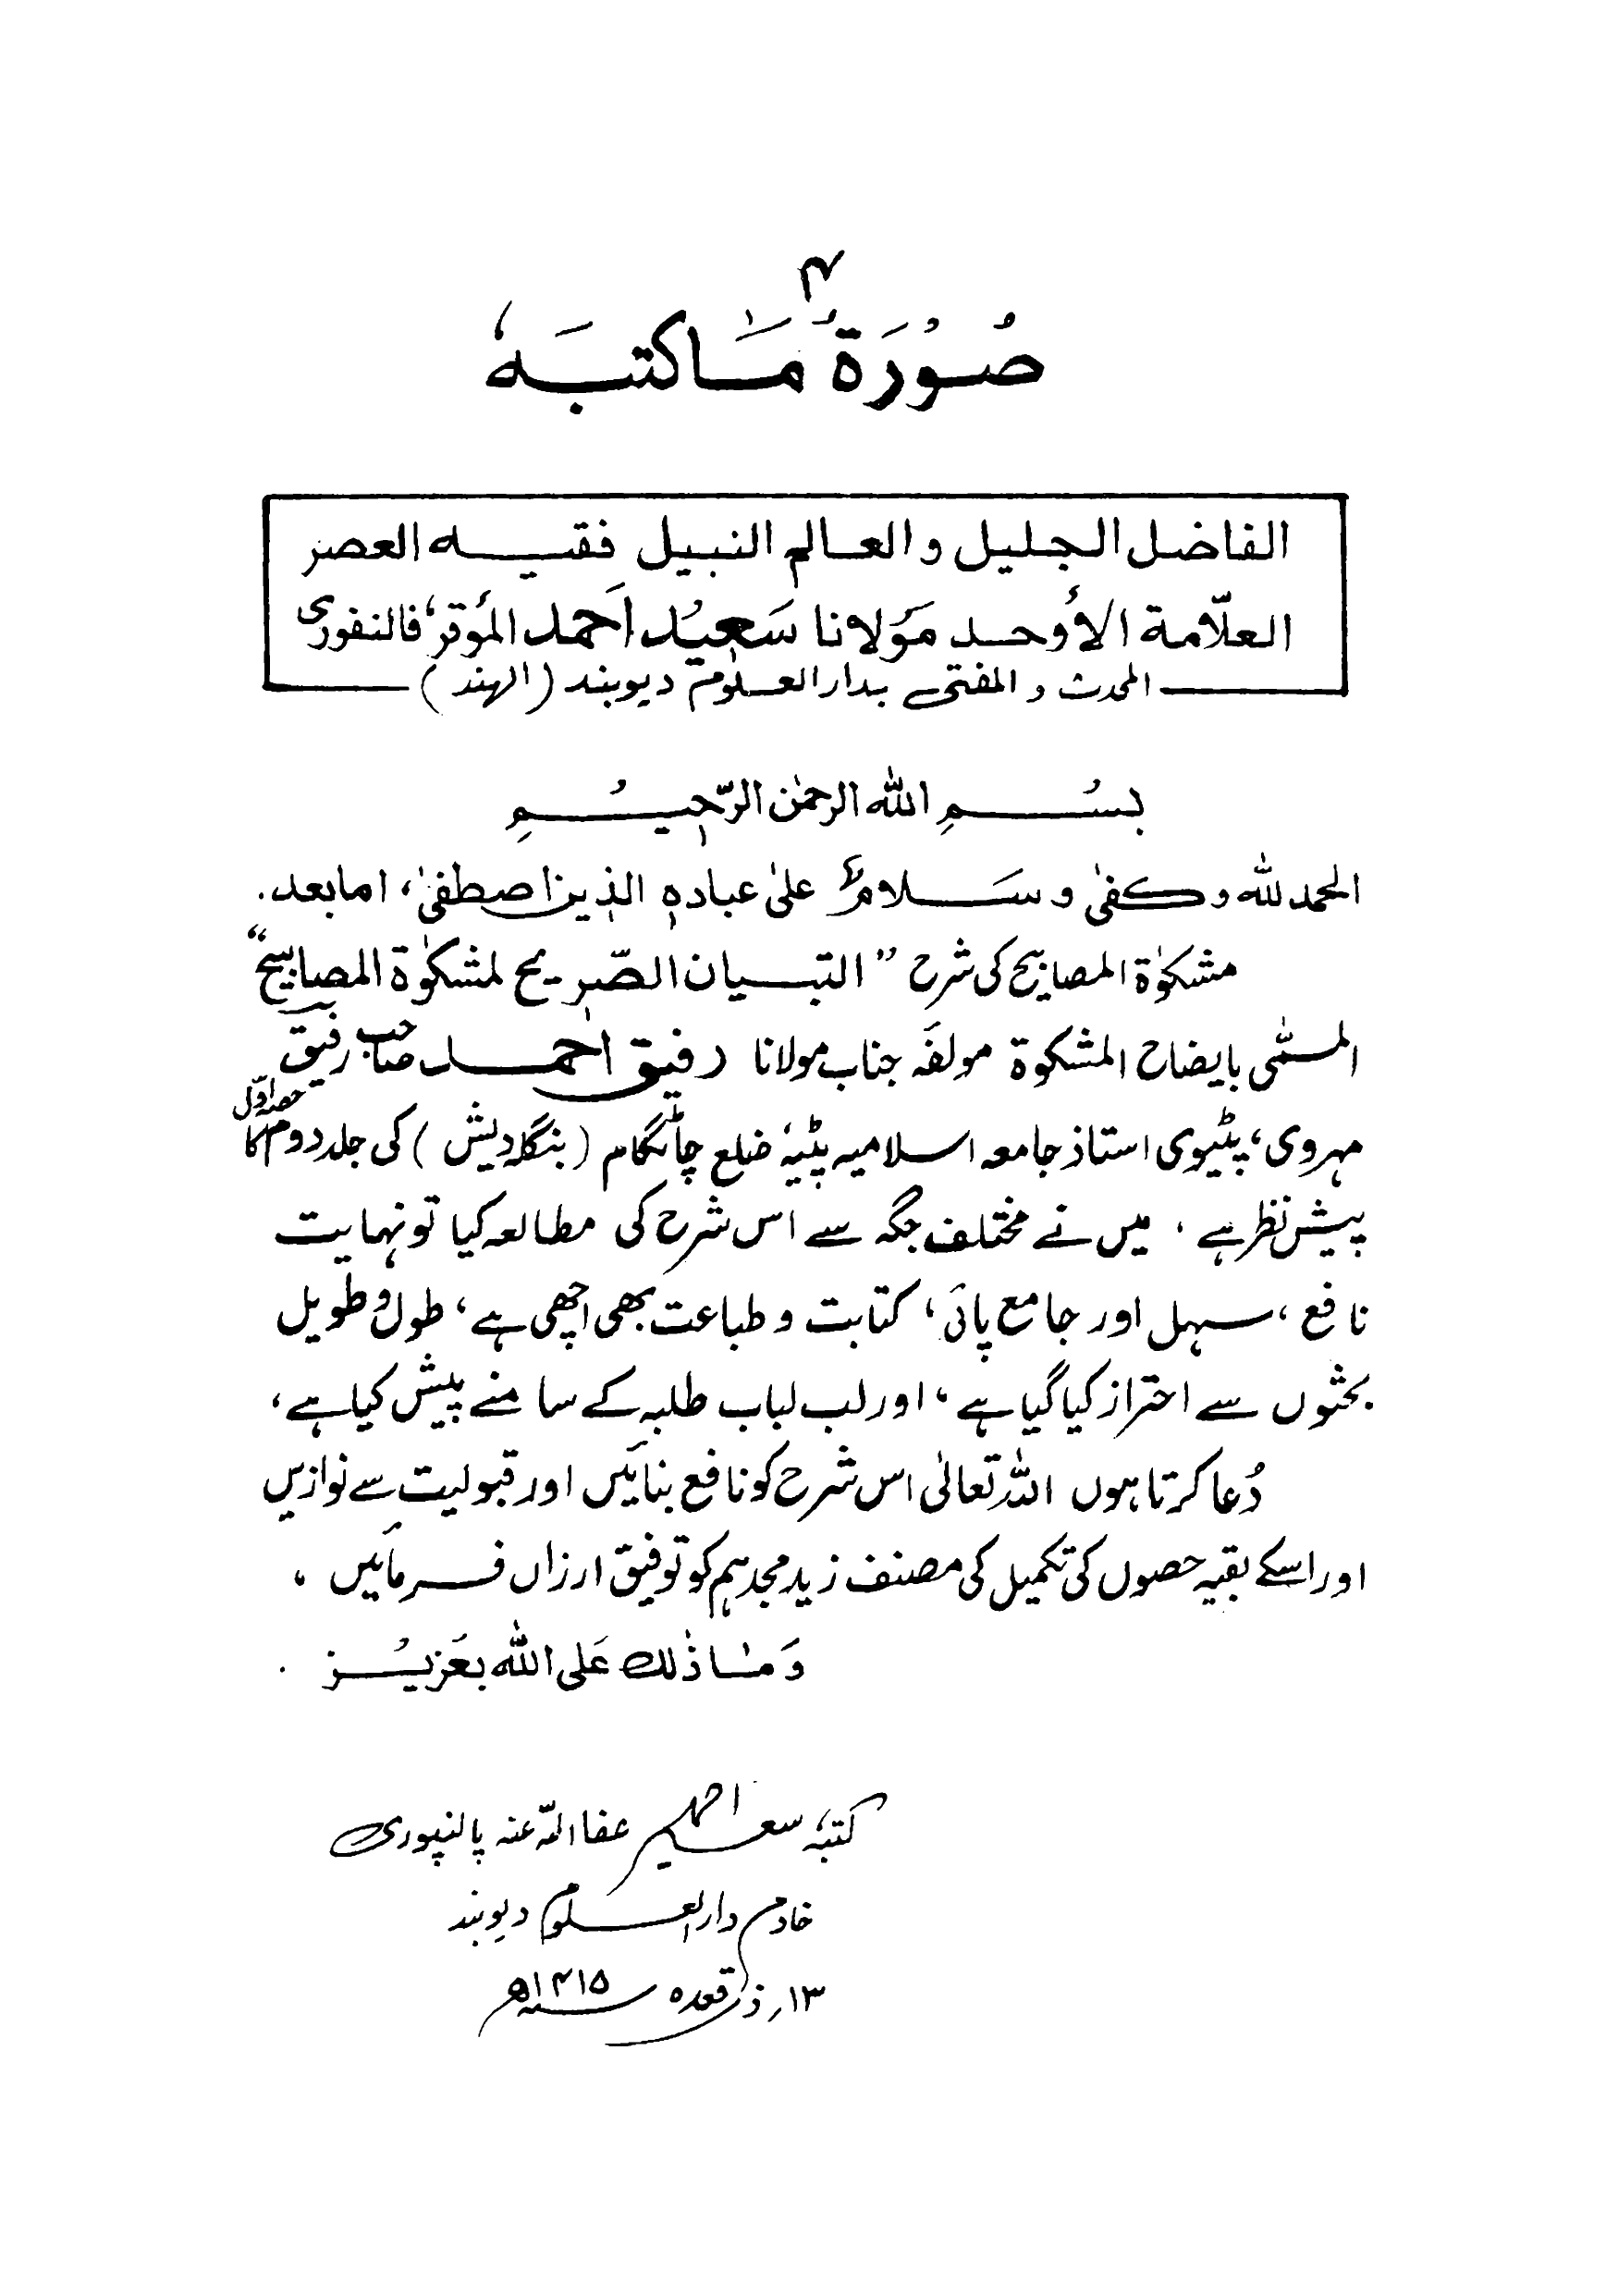 ۴
صُوْرَةُ مَا كتبَہٗ
الفاضل الجليل والعالم النبيل فقيه العصر
العلّامة الأوحد مَولانا سَعِيْد اَحمد المُؤقر فالنفوری
المحدث و المفتی بدار العلوم ديوبند (الهند)
بِسْمِ اللّٰہ الرحمٰن الرّحِيْمِ
الحمد للّٰہ و کفیٰ و سَلامٌ علیٰ عبادہٖ الذِین اصطفیٰ، اما بعد.
مشکوٰۃ المصابیح کی شرح "التبیان الصّرِیح لمشکوٰۃ المصابیح"
المسمّٰی بایضاح المشکوۃ مولفَہ جناب مولانا رفیق احمد صاحب رفیق
مہروی، پٹیوی استاذ جامعہ اسلامیہ پٹیہ ضلع چاٹگام (بنگلہ دیش) کی جلد دوم کا حصہ اوّل
پیش نظر ہے، میں نے مختلف جگہ سے اس شرح کی مطالعہ کیا تو نہایت
نافع، سہل اور جامع پائی، کتابت و طباعت بھی اچھی ہے، طول و طویل
بحثوں سے احتراز کیا گیا ہے، اور لب لباب طلبہ کے سامنے پیش کیا ہے،
دُعا کرتا ہوں اللّٰہ تعالیٰ اس شرح کو نافع بنائیں اور قبولیت سے نوازیں
اور اسکے بقیہ حصوں کی تکمیل کی مصنف زید مجدہم کو توفیق ارزاں فرمائیں،
وَمَا ذٰلك عَلی اللّٰہ بعَزِيْز.
کتبہٗ سعید احمد عفا اللّٰہ عنہ پالنپوری
خادم دارالعلوم دیوبند
۱۳؍ ذی قعدہ ۱۴۱۵ھ